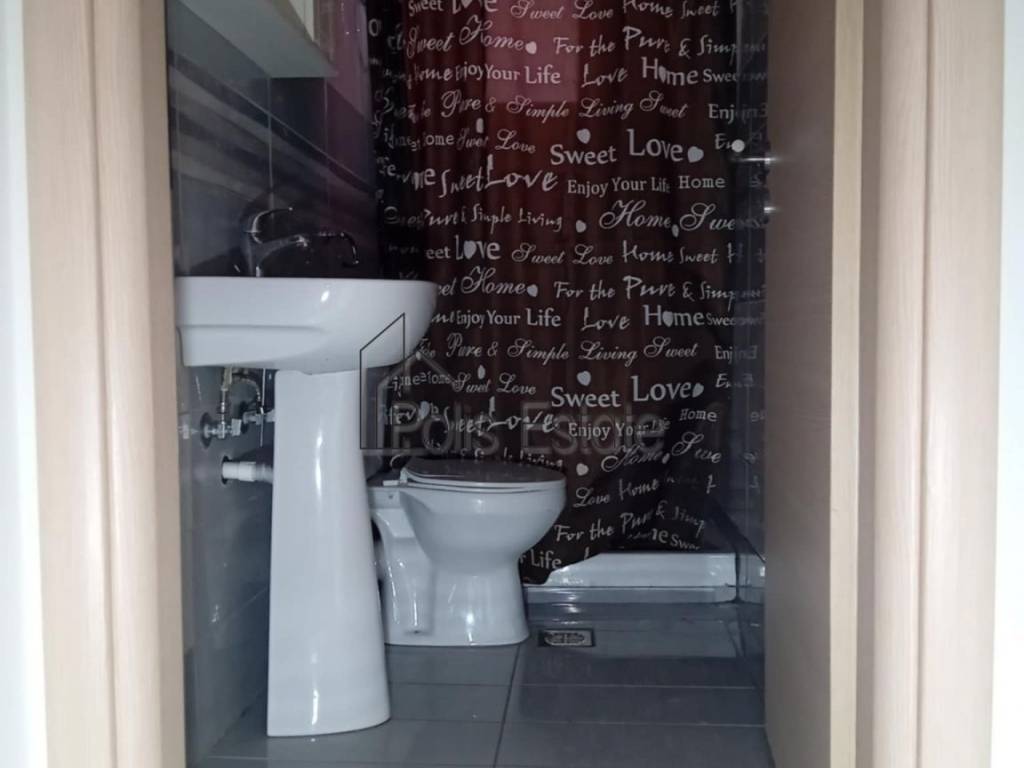 Sweet Love Sweet Love Home Sweet
Sweet Home For the Pure & Simp
Home Enjoy Your Life Love Home Swee
Pure & Simple Living Sweet Enjoy
Home Sweet Love Sweet Love
Sweet Love Enjoy Your Life Home
Pure & Simple Living Home Swe
eet Love Sweet Love Home Sweet H
eet Home For the Pure & Simp
Enjoy Your Life Love Home Swee
Pure & Simple Living Sweet Enj
Home Sweet Love Sweet Love
Sweet Love Enjoy Your Life Home
Polis Estate
& Simple Living Home Swe
Love Home
For the Pure & Simp
r Life me Swee